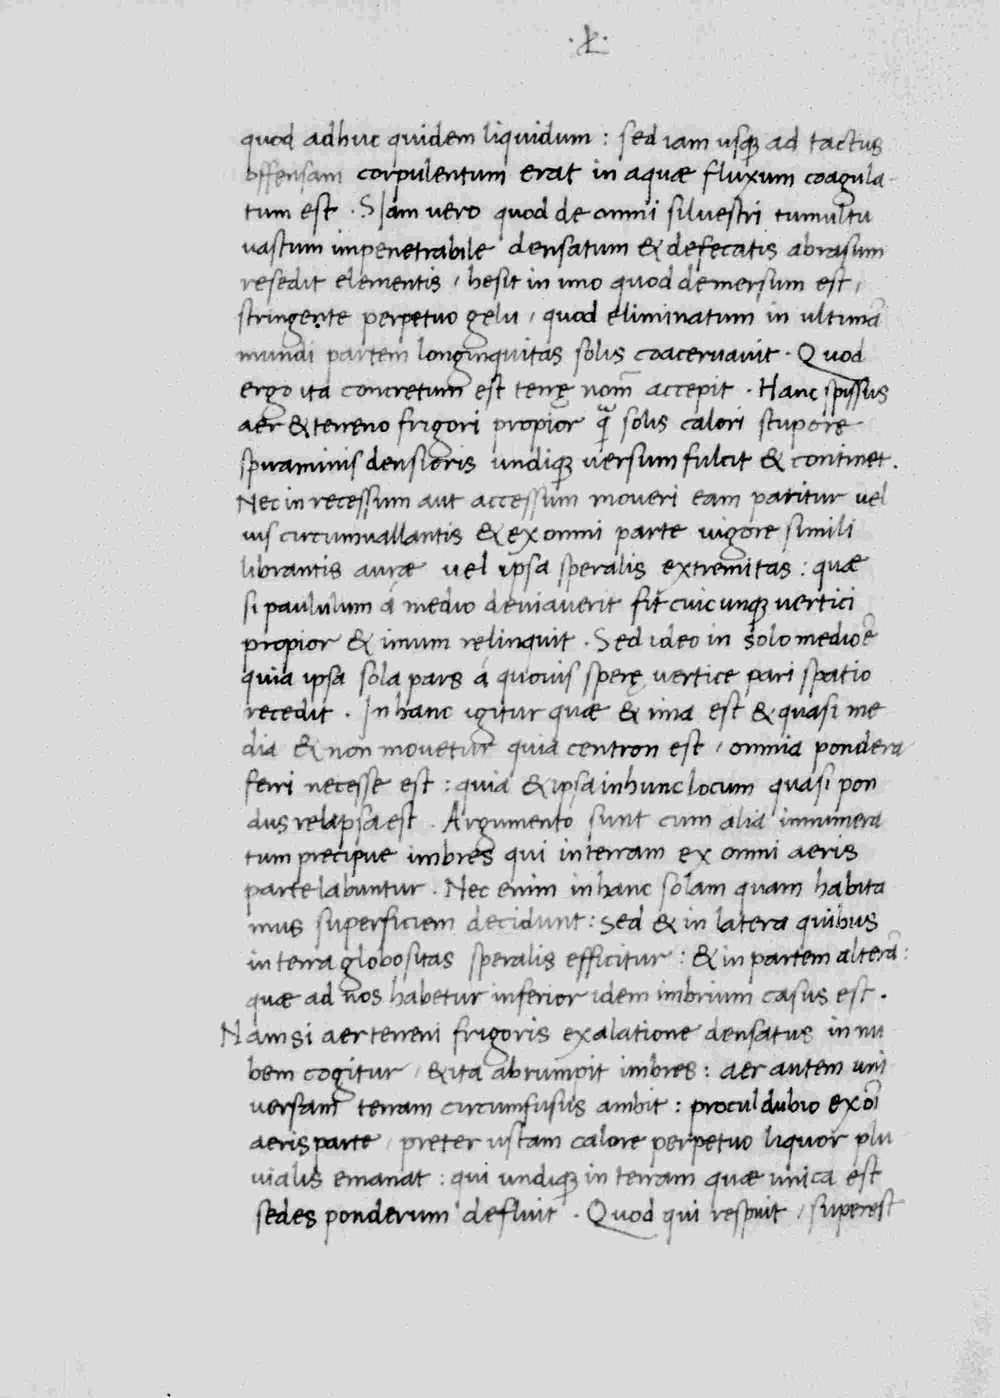 quod adhuc quidem liquidum : sed iam usq; ad tactus
offensam corpulentum erat in aquæ fluxum coagula-
tum est . Iam vero quod de omni silvestri tumultu
vastum impenetrabile densatum & defecatis abrasum
resedit elementis / hesit in imo quod demersum est /
stringente perpetuo gelu / quod eliminatum in ultimā
mundi partem longinquitas solis coacervavit . Quod
ergo ita concretum est terrę nom̄ accepit . Hanc spissus
aer & terreno frigori propior q̃ solis calori stupore
spiraminis densioris undiq; versum fulcit & continet .
Nec in recessum aut accessum moveri eam patitur vel
vis circumvallantis & ex omni parte vigore simili
librantis auræ vel ipsa speralis extremitas : quæ
si paululum á medio deviaverit fit cuicunq; vertici
propior & imum relinquit . Sed ideo in solo medio ē
quia ipsa sola pars á quovis sperę vertice pari spatio
recedit . In hanc igitur quæ & ima est & quasi me
dia & non movetur quia centron est / omnia pondera
ferri necesse est : quia & ipsa in hunc locum quasi pon
dus relapsa est . Argumento sunt cum alia innumera
tum precipue imbres qui in terram ex omni aeris
parte labuntur . Nec enim in hanc solam quam habita
mus superficiem decidunt : sed & in latera quibus
in terra globositas speralis efficitur : & in partem alterā :
quæ ad nos habetur inferior idem imbrium casus est .
Nam si aer terreni frigoris exalatione densatus in nu
bem cogitur / & ita abrumpit imbres : aer autem uni
versam terram circumfusus ambit : procul dubio ex oī
aeris parte / preter ustam calore perpetuo liquor plu
vialis emanat : qui undiq; in terram quæ unica est
sedes ponderum defluit . Quod qui respuit / superest